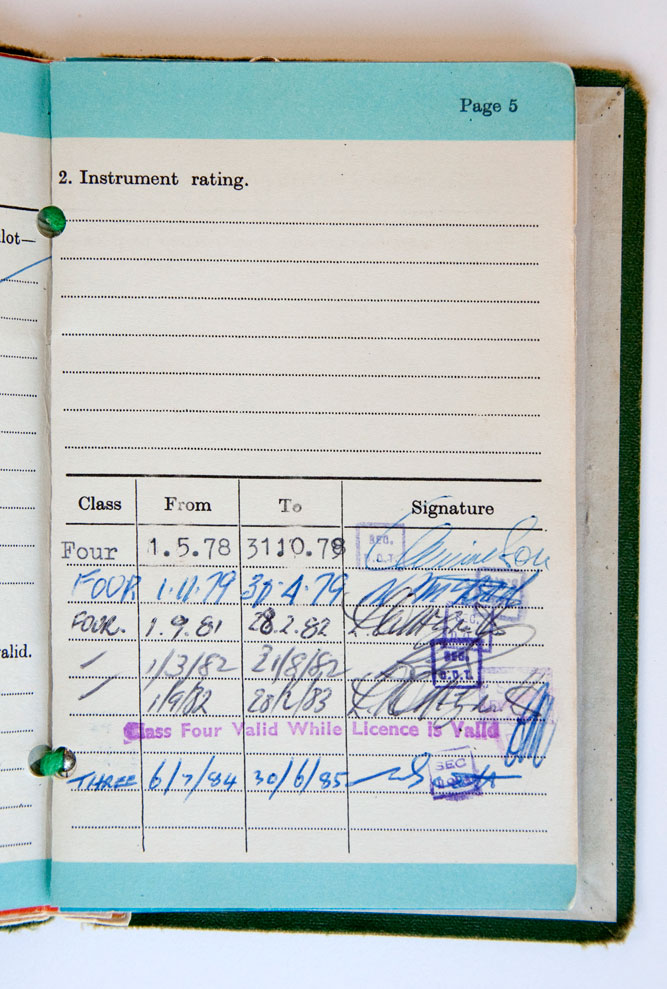 Page 5
2. Instrument rating.
lot—
Class From To Signature
Four 1.5.78 31.10.78
REG. D.O.T.
FOUR 1.11.79 30.4.79
FOUR. 1.9.81 28.2.82
/ 1/3/82 31/8/82
REG. D.O.T.
/ 1/9/82 28/2/83
alid.
Class Four Valid While Licence is Valid
THREE 6/7/84 30/6/85
SEC